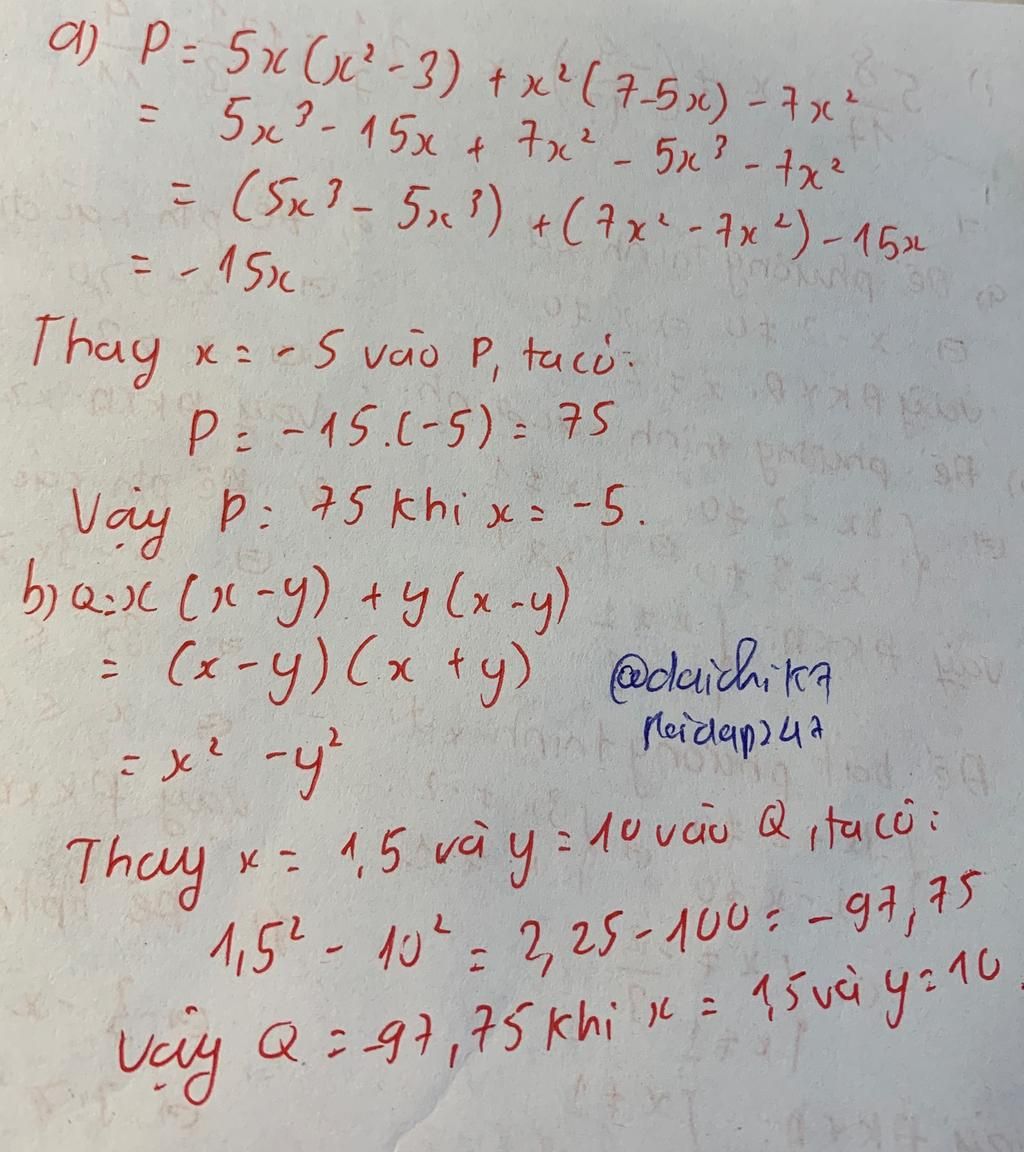 a) P = 5x(x² - 3) + x²(7-5x) - 7x²
= 5x³ - 15x + 7x² - 5x³ - 7x²
= (5x³ - 5x³) + (7x² - 7x²) - 15x
= -15x
Thay x = -5 vào P, ta có:
P = -15.(-5) = 75
Vậy P = 75 khi x = -5.
b) Q = x(x-y) + y(x-y)
= (x-y)(x+y)
@daichik7
= x² - y²
Thay x = 1,5 và y = 10 vào Q, ta có:
1,5² - 10² = 2,25 - 100 = -97,75
Vậy Q = -97,75 khi x = 1,5 và y = 10.